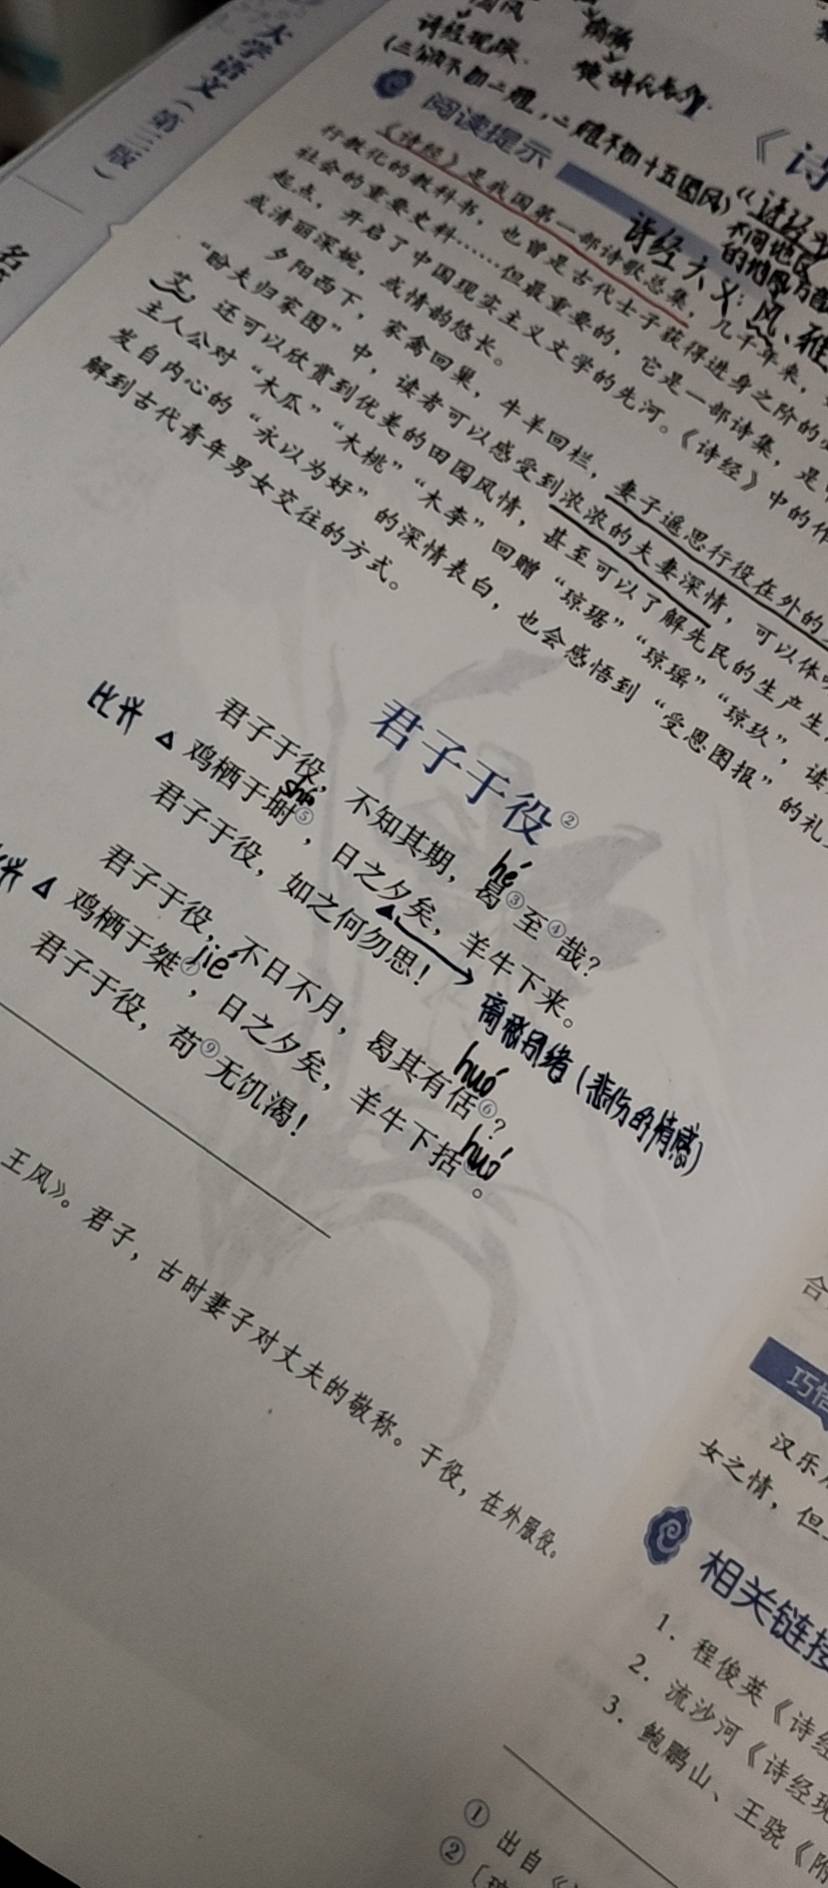 大学语文（第三版）
国风
诗经现疾
(三颂不如二雅，二雅不如十五国风)
阅读提示
《诗
《诗经》是我国第一部诗歌总集，几千年来，
行教化的教科书，也曾是古代士子获得进身之阶的
社会的重要史料……但最重要的，它是一部诗集，是
起点，开启了中国现实主义文学的先河。《诗经》中的作
或清丽深婉，或情韵悠长。
夕阳西下，家禽回巢，牛羊回栏，妻子遥思行役在外的
“盼夫归家图”中，读者可以感受到浓浓的夫妻深情，可以体
艾，还可以欣赏到优美的田园风情，甚至可以了解先民的生产生
主人公对“木瓜”“木桃”“木李”回赠“琼琚”“琼瑶”“琼玖”，读
发自内心的“永以为好”的深情表白，也会感悟到“受恩图报”的礼
解到古代青年男女交往的方式。
诗经六义：风、雅
不同地区
君子于役②
君子于役，不知其期，曷③至④哉？
hé
比兴 △ 鸡栖于埘⑤，日之夕矣，羊牛下来。
shí
君子于役，如之何勿思！
离愁别绪（悲伤的情感）
君子于役，不日不月，曷其有佸⑥？
huó
兴 △ 鸡栖于桀⑦，日之夕矣，羊牛下括⑧。
jié
huó
君子于役，苟⑨无饥渴！
王风》。君子，古时妻子对丈夫的敬称。于役，在外服役。
合
巧
汉乐
女之情，但
相关链接
1. 程俊英《诗经
2. 流沙河《诗经现
3. 鲍鹏山、王骁《附
① 出自《
②